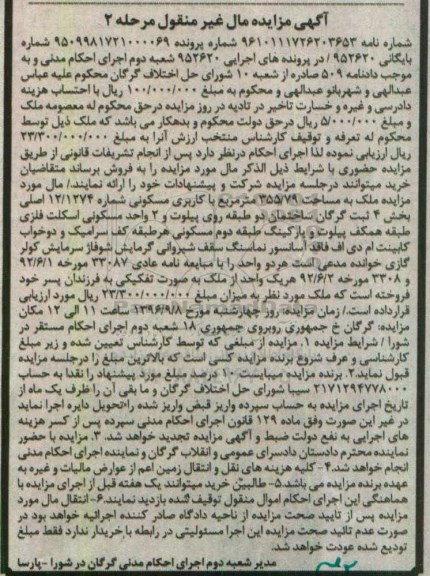 آگهی مزایده مال غیر منقول مرحله ۲
شماره نامه ۹۶۱۰۱۱۱۷۲۶۲۰۳۶۵۳ شماره پرونده ۹۵۰۹۹۸۱۷۲۱۰۰۰۰۶۹ شماره
بایگانی ۹۵۲۶۲۰ / در پرونده های اجرایی ۹۵۲۶۲۰ شعبه دوم اجرای احکام مدنی و به
موجب دادنامه ۵۰۹ صادره از شعبه ۱۰ شورای حل اختلاف گرگان محکوم علیه عباس
عبدالهی و شهربانو عبدالهی و محکوم به مبلغ ۱۰۰/۰۰۰/۰۰۰ ریال با احتساب هزینه
دادرسی و غیره و خسارت تاخیر در تادیه در روز مزایده درحق محکوم له معصومه ملک
و مبلغ ۵/۰۰۰/۰۰۰ ریال درحق دولت محکوم و بدهکار می باشد که ملک ذیل توسط
محکوم له تعرفه و توقیف کارشناس منتخب ارزش آنرا به مبلغ ۲۳/۳۰۰/۰۰۰/۰۰۰
ریال ارزیابی نموده لذا اجرای احکام درنظر دارد پس از انجام تشریفات قانونی از طریق
مزایده حضوری با شرایط ذیل الذکر مال مورد مزایده را به فروش برساند متقاضیان
خرید میتوانند درجلسه مزایده شرکت و پیشنهادات خود را ارائه نمایند./ مال مورد
مزایده ملک به مساحت ۳۵۵/۷۹ مترمربع با کاربری مسکونی شماره ۱۲/۱۲۷۴ اصلی
بخش ۴ ثبت گرگان ساختمان دو طبقه روی پیلوت و ۲ واحد مسکونی اسکلت فلزی
طبقه همکف پیلوت و پارکینگ طبقه دوم مسکونی هرطبقه کف سرامیک و دوخواب
کابینت ام دی اف فاقد آسانسور نماسنگ سقف شیروانی گرمایش شوفاژ سرمایش کولر
گازی خوانده مدعی است هردو واحد را با مبایعه نامه عادی ۳۳۰۸۷ مورخه ۹۲/۶/۱
و ۳۳۰۸ مورخه ۹۲/۶/۲ هریک واحد از ملک به صورت تفکیکی به فرزندان پسر خود
فروخته است که ملک مورد نظر به میزان مبلغ ۲۳/۳۰۰/۰۰۰/۰۰۰ ریال مورد ارزیابی
قرارداده است./ زمان مزایده: روز چهارشنبه مورخ ۱۳۹۶/۹/۸ ساعت ۱۱ الی ۱۲ مکان
مزایده: گرگان خ جمهوری روبروی جمهوری ۱۸ شعبه دوم اجرای احکام مستقر در
شورا / شرایط مزایده ۱. مزایده از مبلغی که توسط کارشناس تعیین شده و زیر مبلغ
کارشناسی و عرف شروع برنده مزایده کسی است که بالاترین مبلغ را درجلسه مزایده
قبول نماید. ۲. برنده مزایده میبایست ۱۰ درصد مبلغ مورد پیشنهاد را نقدا به حساب
۲۱۷۱۲۹۴۷۷۸۰۰۰ سیبا شورای حل اختلاف گرگان و ما بقی آن را ظرف یک ماه از
تاریخ اجرای مزایده به حساب سپرده واریز قبض واریز شده را تحویل دایره اجرا نماید
در غیر این صورت وفق ماده ۱۲۹ قانون اجرای احکام مدنی سپرده پس از کسر هزینه
های اجرایی به نفع دولت ضبط و آگهی مزایده تجدید خواهد شد. ۳. مزایده با حضور
نماینده محترم دادستان دادسرای عمومی و انقلاب گرگان و نماینده اجرای احکام مدنی
انجام خواهد شد. ۴- کلیه هزینه های نقل و انتقال زمین اعم از عوارض مالیات و غیره به
عهده برنده مزایده می باشد. ۵- طالبین خرید میتوانند یک هفته قبل از اجرای مزایده با
هماهنگی این اجرای احکام اموال منقول توقیف شده بازدید نمایند. ۶- انتقال مال مورد
مزایده پس از تایید صحت مزایده از ناحیه دادگاه صادر کننده اجرائیه خواهد بود در
صورت عدم تائید صحت مزایده این اجرا مسئولیتی در رابطه با خریدار ندارد فقط مبلغ
تودیع شده عودت خواهد شد.
مدیر شعبه دوم اجرای احکام مدنی گرگان در شورا - پارسا